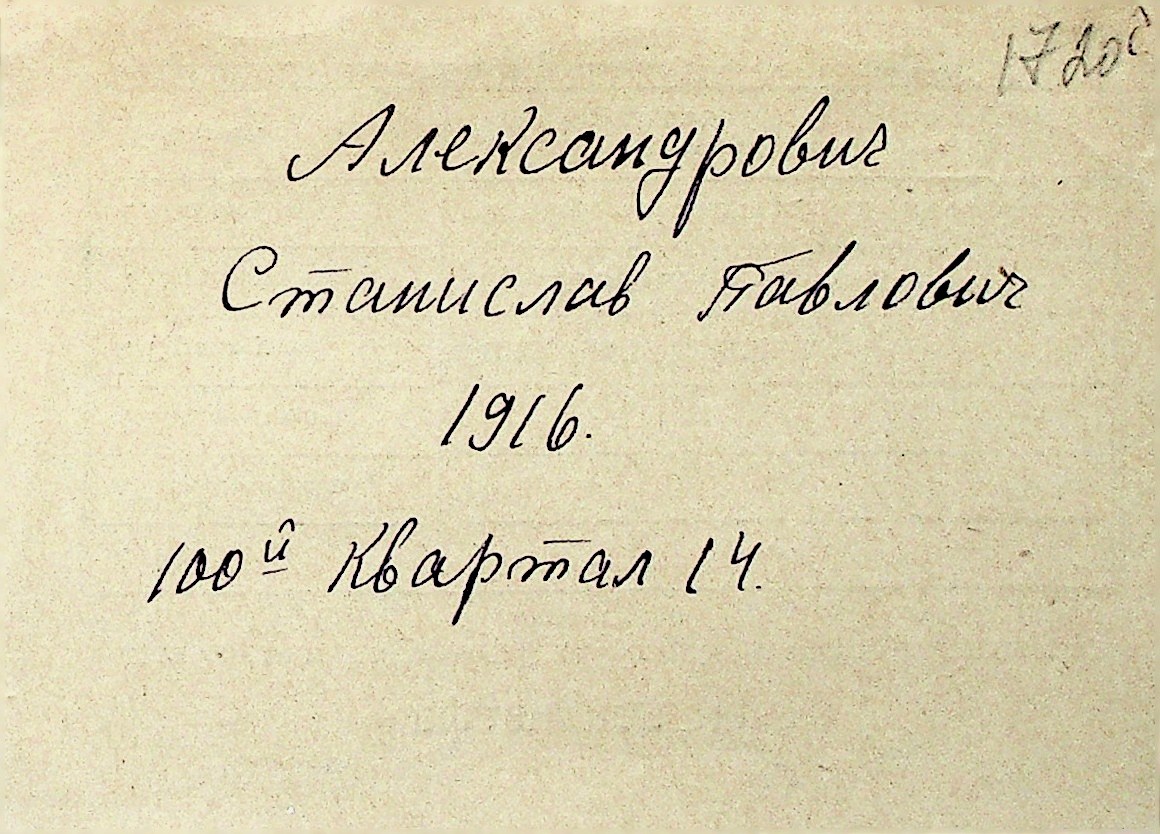 1720с
Александрович
Станислав Павлович
1916.
100й квартал 14.